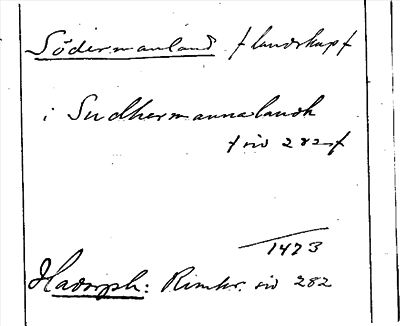 Södermanland f landskap f
i Sudhermannalandh
f sid 282 f
1473
Hadorph: Rimkr. sid 282